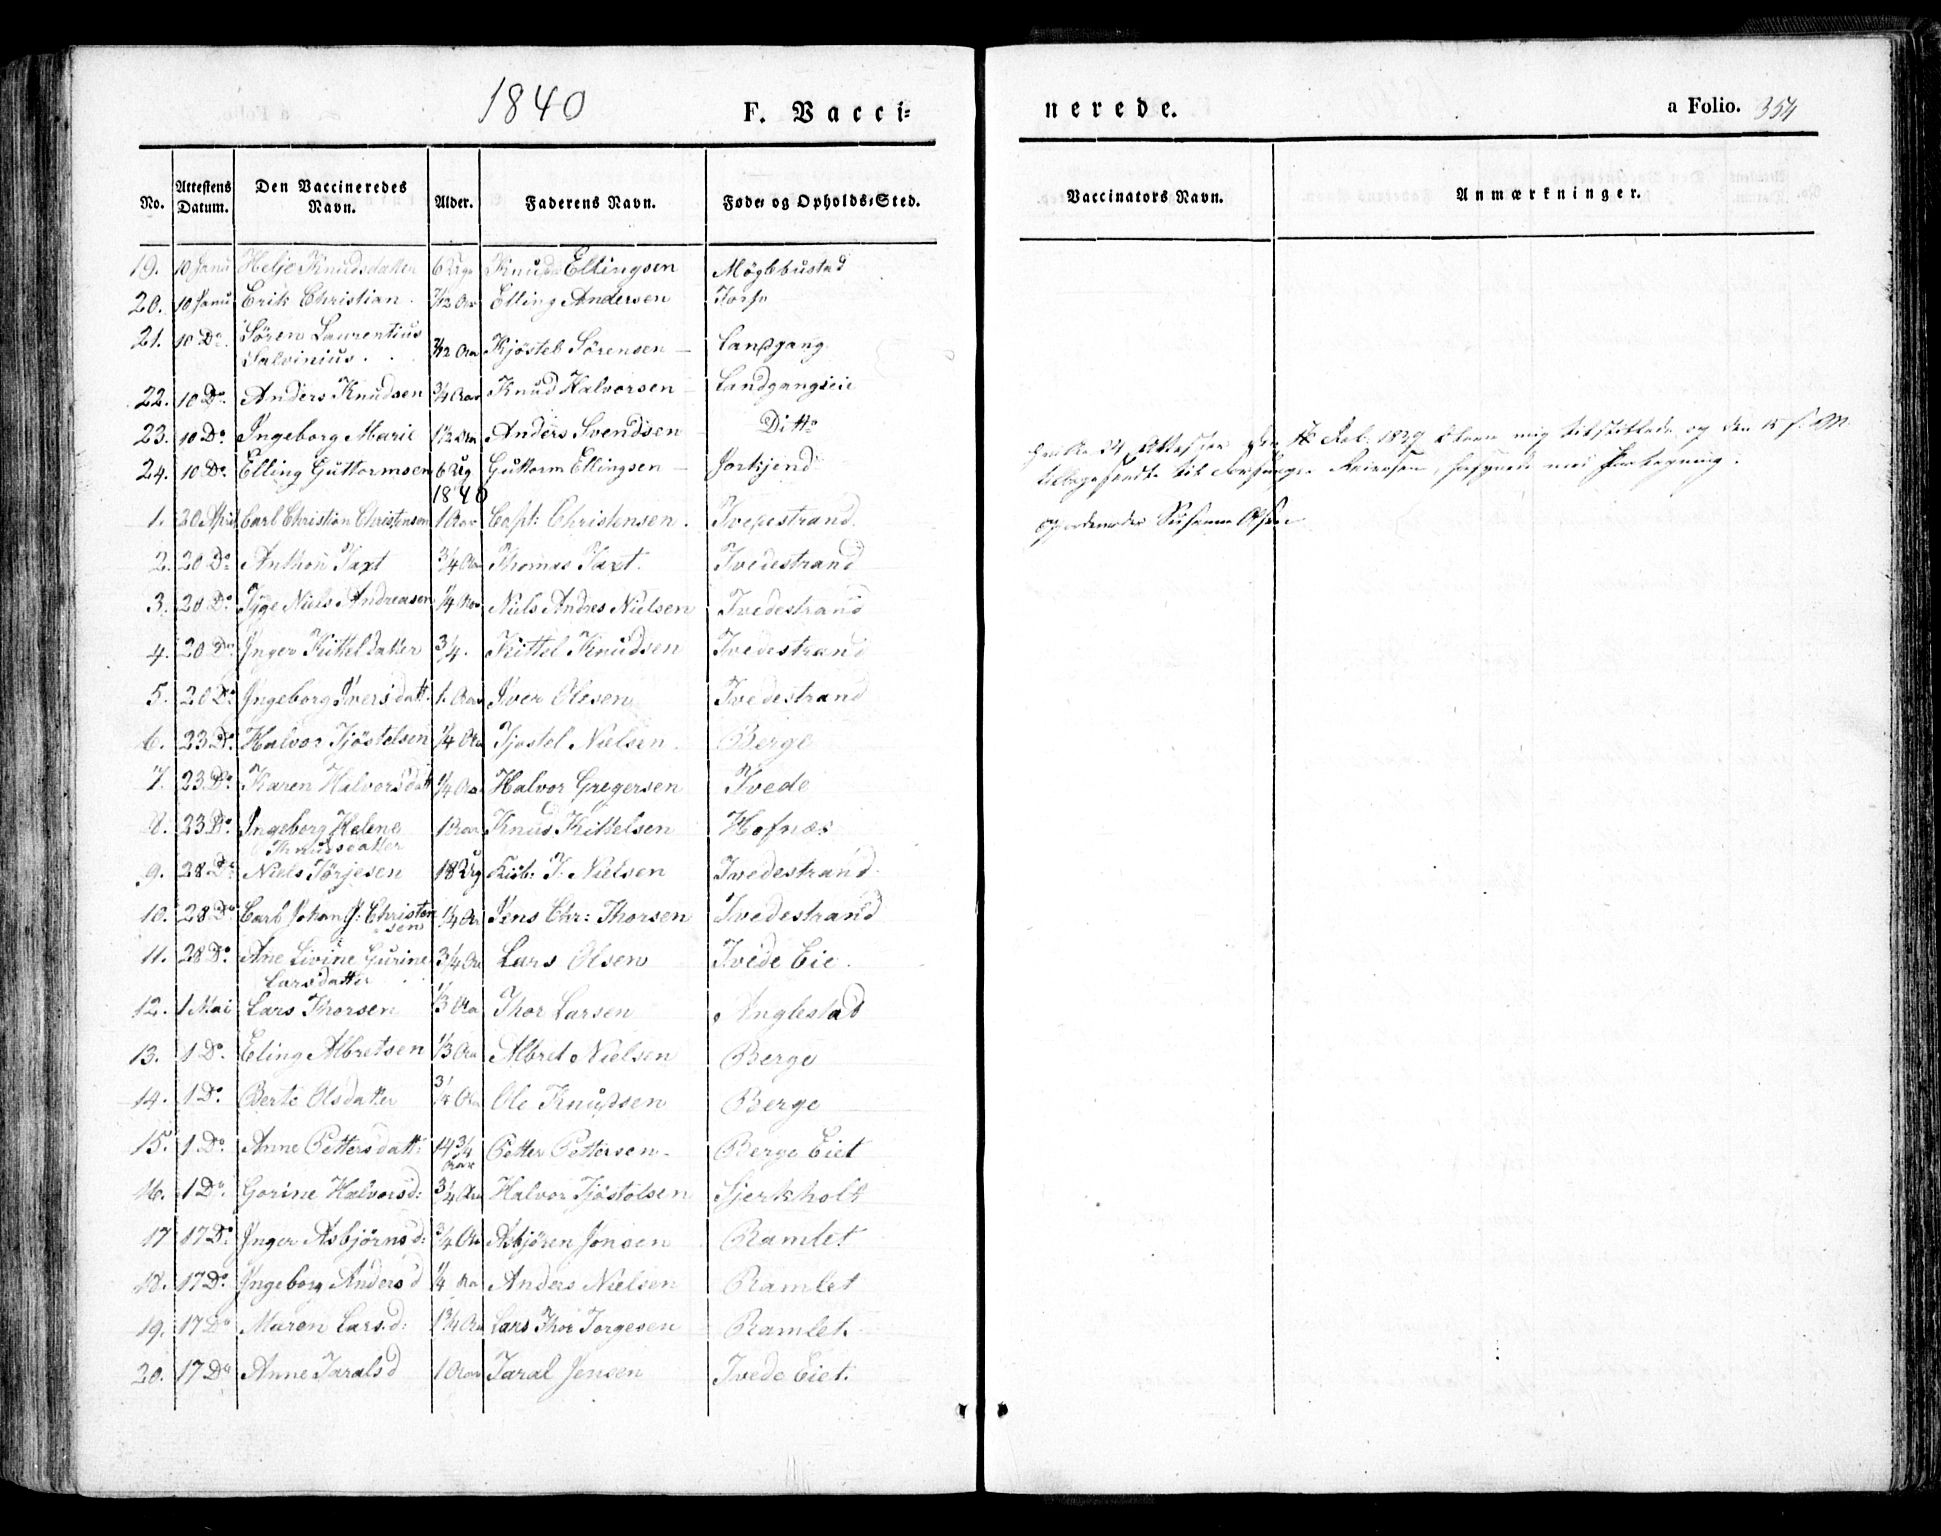 1840
F. Vacci=
nerede.
a Folio. 354
No. Attestens Datum. Den Vaccineredes Navn. Alder. Faderens Navn. Føde= og Opholds=Sted. Vaccinators Navn. Anmærkninger.
19. 10 Janu Helje Knudsdatter 6 Knud Ellingsen Møglebustad
20. 10 Janu Erik Christian 7/12 Aar Elling Andersen
21. 10 Do. Søren Laurentius
Salvinius. 7/12 Aar Kjøstel Sørensen Landgang
22. 10 Do. Anders Knudsen 3/4 Aar Knud Halvorsen Landgangseie
23. 10 Do. Ingeborg Marie 1 1/2 Aar Anders Svendsen Ditto
24. 10 Do. Elling Guttormsen 6 Ug Guttorm Ellingsen
1840
1. 20 April Carl Christian Christensen 1 Aar Capt: Christensen. Tvedestrand
2. 20 Do Anthon Taxt 3/4 Aar Thomas Taxt. Tvedestrand
3. 20 Do. Tyge Niels Andreasen 1/4 Aar Niels Andres Nielsen Tvedestrand
4. 20 Do. Inger Kittelsdatter 3/4. Kittel Knudsen Tvedestrand
5. 20 Do. Ingeborg Iversdatt. 1 Aar Iver Olesen Tvedestrand
6. 23 Do. Halvor Tjøstelsen 1/4 Aar Tjøstel Nielsen. Berge
7. 23 Do. Karen Halvorsdatt 1/4 Aar Halvor Gregersen Tvede
8. 23 Do. Ingeborg Helene
Knudsdatter 1 Aar Knud Kittelsen Hofnæs
9. 28 Do. Niels Tørjesen 18 Ug T. Nielsen Tvedestrand
10. 28 Do Carl Johan J: Christen
sen 1/4 Aar Jens Chr: Thorsen Tvedestrand
11. 28 Do. Ane Livine Gurine
Larsdatter 3/4 Aar Lars Olsen Tvede Eie.
12. 1 Mai Lars Thorsen 1/3 Aar Thor Larsen Anglestad
13. 1 Do. Eling Albretsen 1/3 Aar Albret Nielsen Berge
14. 1 Do. Berte Olsdatter Ole Knudsen Berge
15. 1 Do. Anne Pettersdatt: 14 3/4 Aar Petter Pettersen Berge Eiet
16. 1 Do. Gorine Halvorsd: 3/4 Aar Halvor Tjøstolsen Sjerkholt
17 17 Do. Inger Asbjørnsd: 3/4 Aar Asbjøren Jonsen Ramlet
18. 17 Do. Ingeborg Andersd 1/4 Aar Anders Nielsen Ramlet
19. 17 Do Maren Larsd: 1 3/4 Aar Lars Thor Torgesen Ramlet.
20. 17 Do Anne Taralsd 1 Aar Taral Jensen Tvede Eiet.